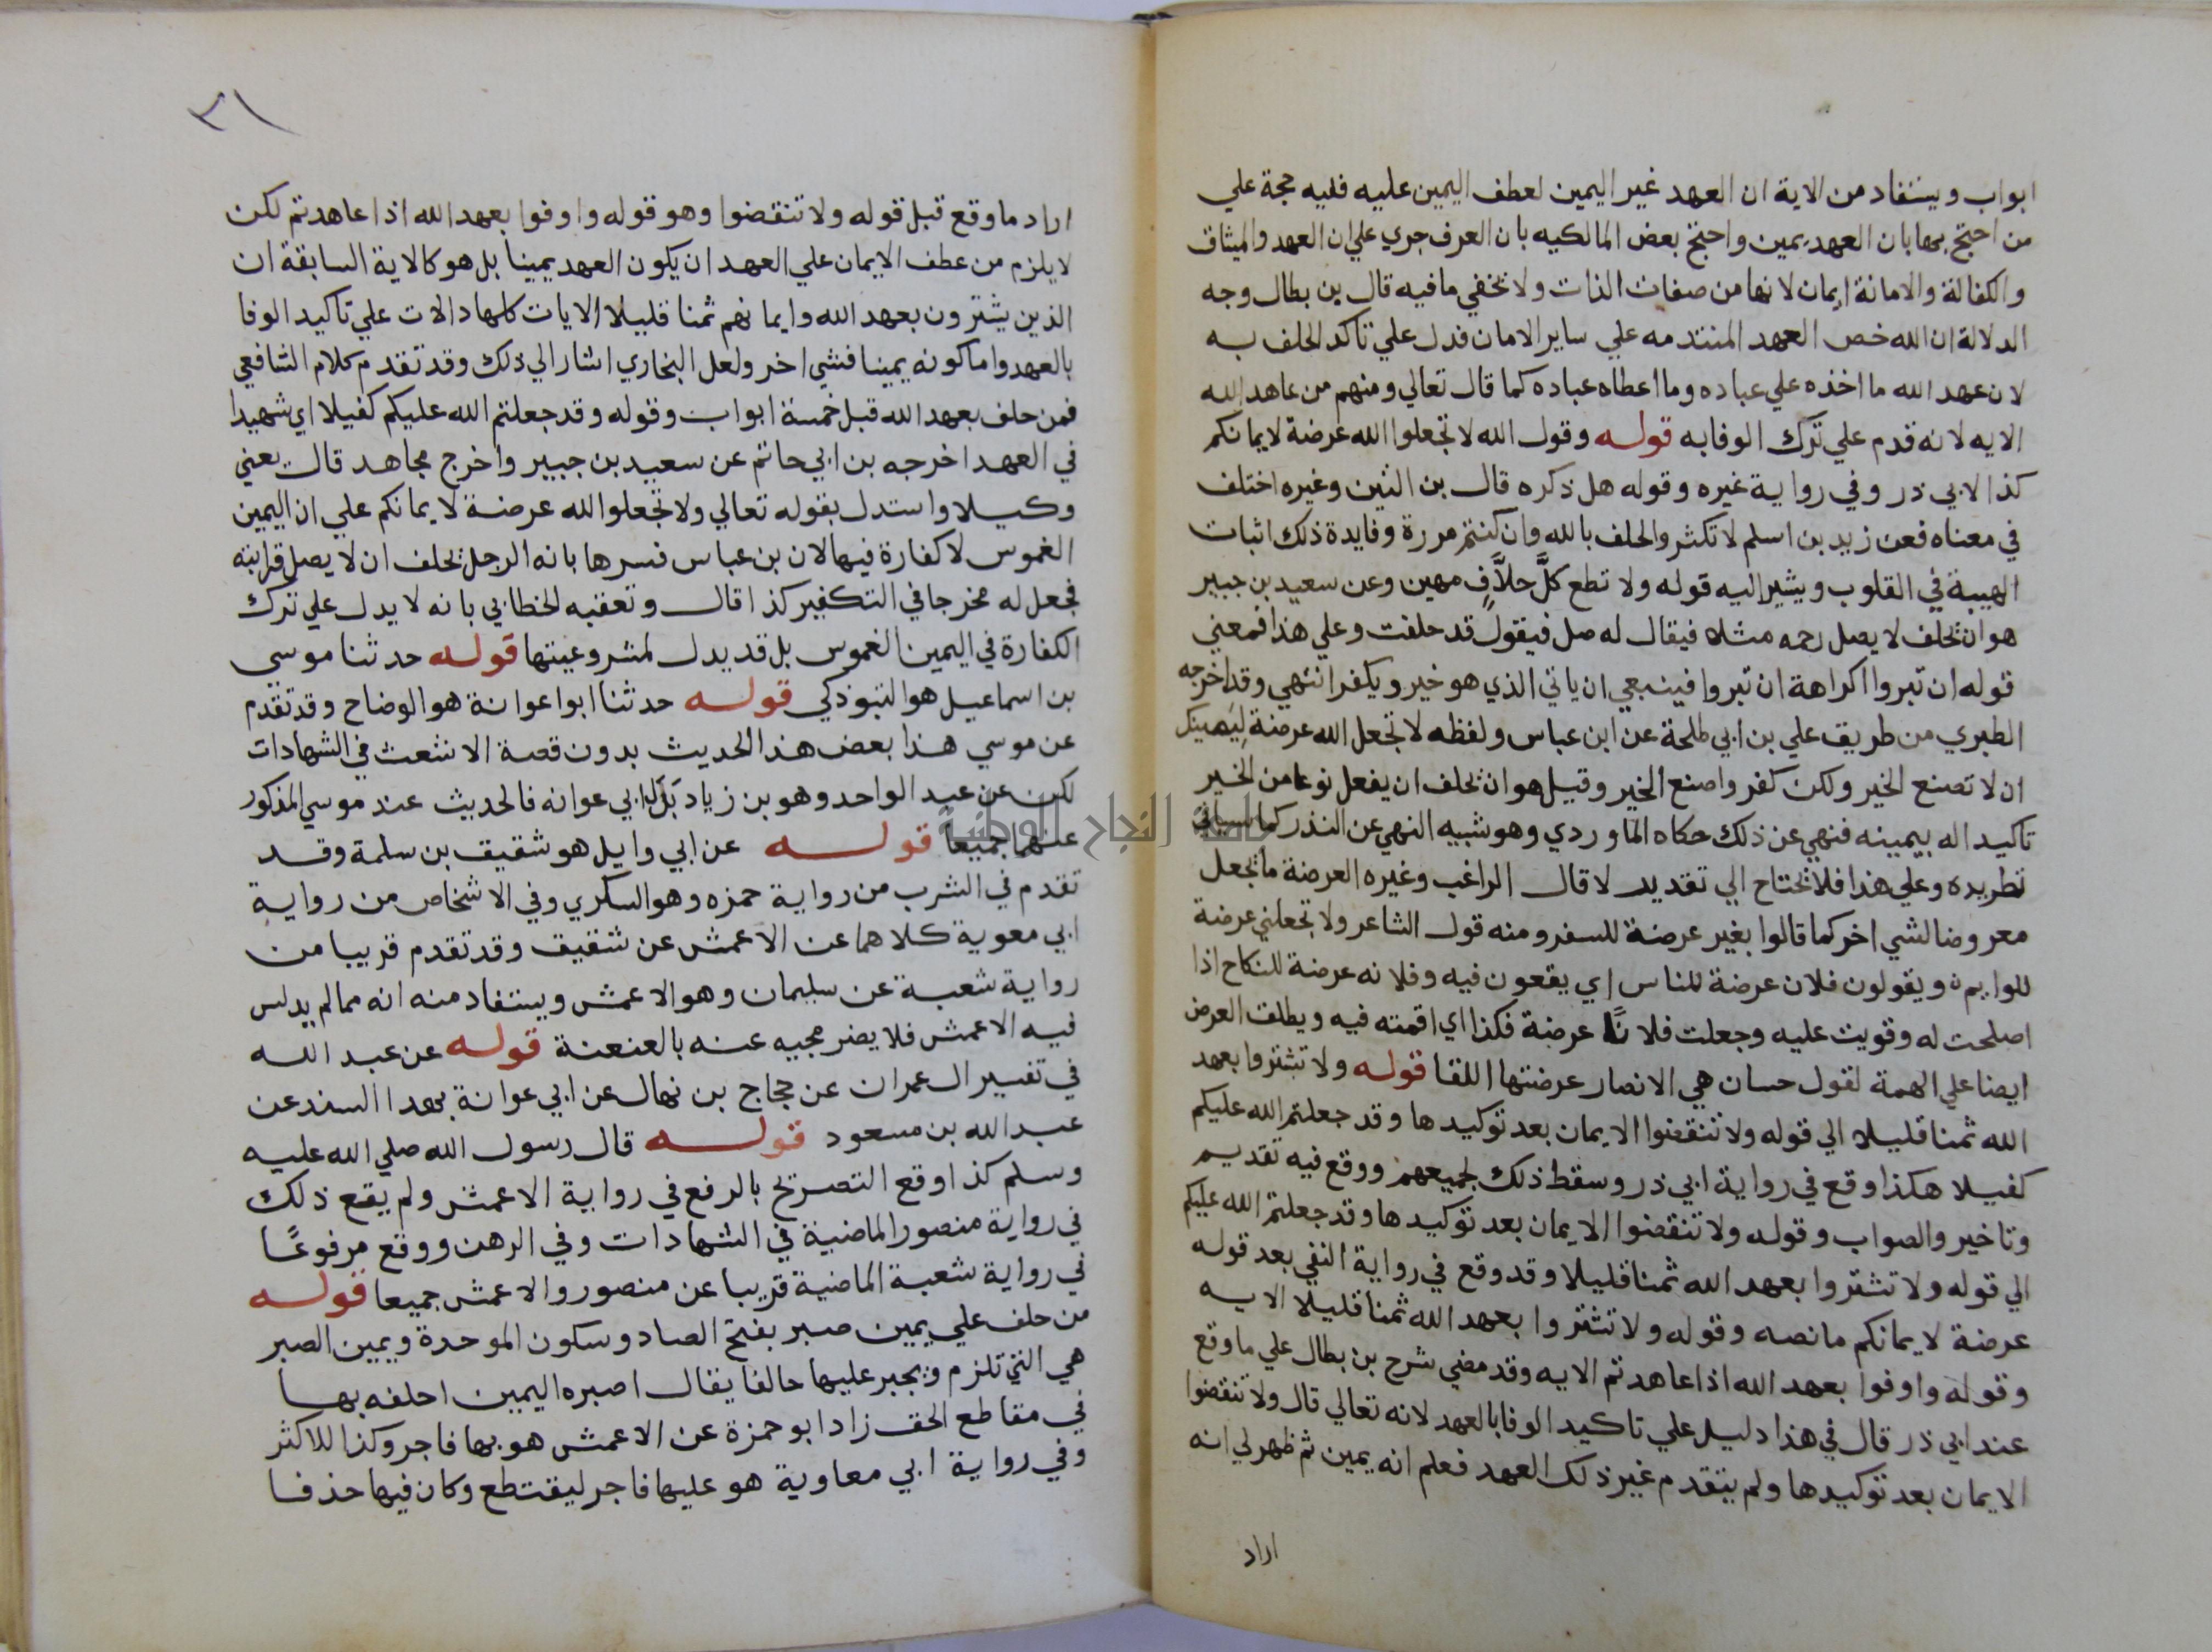 ابواب ويستفاد من الاية ان العهد غير اليمين لعطف اليمين عليه ففيه حجة علي
من احتج بها بان العهد يمين واحتج بعض المالكيه بان العرف جري علي ان العهد والميثاق
والكفالة والامانة ايمان لانها من صفات الذات ولا يخفي ما فيه قال بن بطال وجه
الدلالة ان الله خص العهد المتقدمه علي ساير الامان فدل علي تاكد الحلف به
لان عهد الله ما اخذه علي عباده وما اعطاه عباده كما قال تعالي ومنهم من عاهد الله
الايه لانه قدم علي ترك الوفا به قوله وقول الله لا تجعلوا الله عرضة لايمانكم
كذا لابي ذر وفي رواية غيره وقوله هل ذكره قال بن التين وغيره اختلف
في معناه فعن زيد بن اسلم لا تكثروا الحلف بالله وان كنتم بررة وفايدة ذلك اثبات
الهيبة في القلوب ويشير اليه قوله ولا تطع كلَّ حلاَّفٍ مهين وعن سعيد بن جبير
هو ان يحلف لا يصل رحمه مثلا فيقال له صل فيقول قد حلفت وعلي هذا فمعني
قوله ان تبروا كراهة ان تبروا فينبغي ان ياتي الذي هو خير ويكفر انتهي وقد اخرجه
الطبري من طريق علي بن ابي طلحة عن ابن عباس ولفظه لا تجعل الله عرضة ليمينك
ان لا تصنع الخير ولكن كفر واصنع الخير وقيل هو ان يحلف ان يفعل نوعا من الخير
تاكيدا له بيمينه فنهي عن ذلك حكاه الماوردي وهو شبيه النهي عن النذر كما سياتي
تطريده وعلي هذا فلا يحتاج الي تقدير لا قال الراغب وغيره العرضة ما يجعل
معروضا لشي اخر كما قالوا بغير عرضة للسفر ومنه قول الشاعر ولا تجعلني عرضة
للوايم ويقولون فلان عرضة للناس اي يقعون فيه وفلانه عرضة للنكاح اذا
اصلحت له وقويت عليه وجعلت فلانًا عرضة فكذا اي اقمته فيه ويطلق العرض
ايضا علي الهمة لقول حسان هي الانصار عرضتها اللقا قوله ولا تشتروا بعهد
الله ثمنا قليلا الي قوله ولا تنقضوا الايمان بعد توكيدها وقد جعلتم الله عليكم
كفيلا هكذا وقع في رواية ابي ذر وسقط ذلك لجميعهم ووقع فيه تقديم
وتاخير والصواب وقوله ولا تنقضوا الايمان بعد توكيدها وقد جعلتم الله عليكم
الي قوله ولا تشتروا بعهد الله ثمنا قليلا وقد وقع في رواية النفي بعد قوله
عرضة لايمانكم ما نصه وقوله ولا تشتروا بعهد الله ثمنا قليلا الايه
وقوله واوفوا بعهد الله اذا عاهدتم الايه وقد مضي شرح بن بطال علي ما وقع
عند ابي ذر قال في هذا دليل علي تاكيد الوفا بالعهد لانه تعالي قال ولا تنقضوا
الايمان بعد توكيدها ولم يتقدم غير ذلك العهد فعلم انه يمين ثم ظهر لي انه
اراد
٣١
اراد ما وقع قبل قوله ولا تنقضوا وهو قوله واوفوا بعهد الله اذا عاهدتم لكن
لا يلزم من عطف الايمان علي العهد ان يكون العهد يمينا بل هو كالاية السابقة ان
الذين يشترون بعهد الله وايمانهم ثمنا قليلا الايات كلها دالات علي تاكيد الوفا
بالعهد واما كونه يمينا فشي اخر ولعل البخاري اشار الي ذلك وقد تقدم كلام الشافعي
فمن حلف بعهد الله قبل خمسة ابواب وقوله وقد جعلتم الله عليكم كفيلا اي شهيدا
في العهد اخرجه بن ابي حاتم عن سعيد بن جبير واخرج مجاهد قال يعني
وكيلا واستدل بقوله تعالي ولا تجعلوا الله عرضة لايمانكم علي ان اليمين
الغموس لا كفارة فيها لان بن عباس فسرها بانه الرجل يحلف ان لا يصل قرابته
فجعل له مخرجا في التكفير كذا قال وتعقبه الخطابي بانه لا يدل علي ترك
الكفارة في اليمين الغموس بل قد يدل لمشروعيتها قوله حدثنا موسي
بن اسماعيل هو التبوذكي قوله حدثنا ابوا عوانة هو الوضاح وقد تقدم
عن موسي هذا بعض هذا الحديث بدون قصة الاشعث في الشهادات
لكن عن عبد الواحد وهو بن زياد بَدَل ابي عوانه فالحديث عند موسي المذكور
عنهما جميعا قوله عن ابي وايل هو شقيق بن سلمة وقد
تقدم في الشرب من رواية حمزه وهو السكري وفي الاشخاص من رواية
ابي معوية كلاهما عن الاعمش عن شقيق وقد تقدم قريبا من
رواية شعبة عن سليمان وهو الاعمش ويستفاد منه انه مما لم يدلس
فيه الاعمش فلا يضر مجيه عنه بالعنعنة قوله عن عبد الله
في تفسير ال عمران عن حجاج بن نهال عن ابي عوانة بهدا السند عن
عبد الله بن مسعود قوله قال رسول الله صلي الله عليه
وسلم كذا وقع التصريح بالرفع في رواية الاعمش ولم يقع ذلك
في رواية منصور الماضية في الشهادات وفي الرهن ووقع مرفوعًا
في رواية شعبة الماضية قريبا عن منصور والاعمش جميعا قوله
من حلف علي يمين صبر بفتح الصاد وسكون الموحدة ويمين الصبر
هي التي تلزم ويجبر عليها حالفا يقال اصبره اليمين احلفه بها
في مقاطع الحق زاد ابو حمزة عن الاعمش هو بها فاجر وكذا للاكثر
وفي رواية ابي معاوية هو عليها فاجر ليقتطع وكان فيها حذفا
جامعة النجاح الوطنية